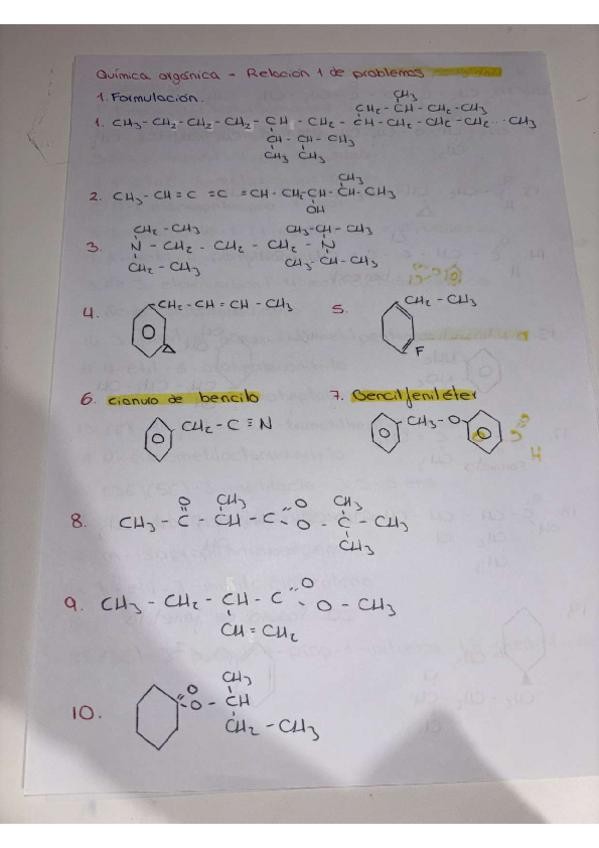 Química orgánica - Relación 1 de problemas
1. Formulación.
CH3
CH2 - CH - CH2 - CH3
1. CH3 - CH2 - CH2 - CH2 - CH - CH2 - CH - CH2 - CH2 - CH2 - CH3
CH - CH - CH3
CH3 CH3
CH3
2. CH3 - CH = C = C = CH - CH2 - CH - CH - CH3
OH
CH2 - CH3 CH3 - CH - CH3
3. N - CH2 - CH2 - CH2 - N
CH2 - CH3 CH3 - CH - CH3
4. CH2 - CH = CH - CH3 5. CH2 - CH3
F
6. cianuro de bencilo 7. Bencilfeniléter
CH2 - C ≡ N CH3 - O
8. CH3 - C - CH - C - O - C - CH3
O CH3 O CH3
CH3
9. CH3 - CH2 - CH - C O - CH3
O
CH = CH2
CH3
10. O O - CH
CH2 - CH3